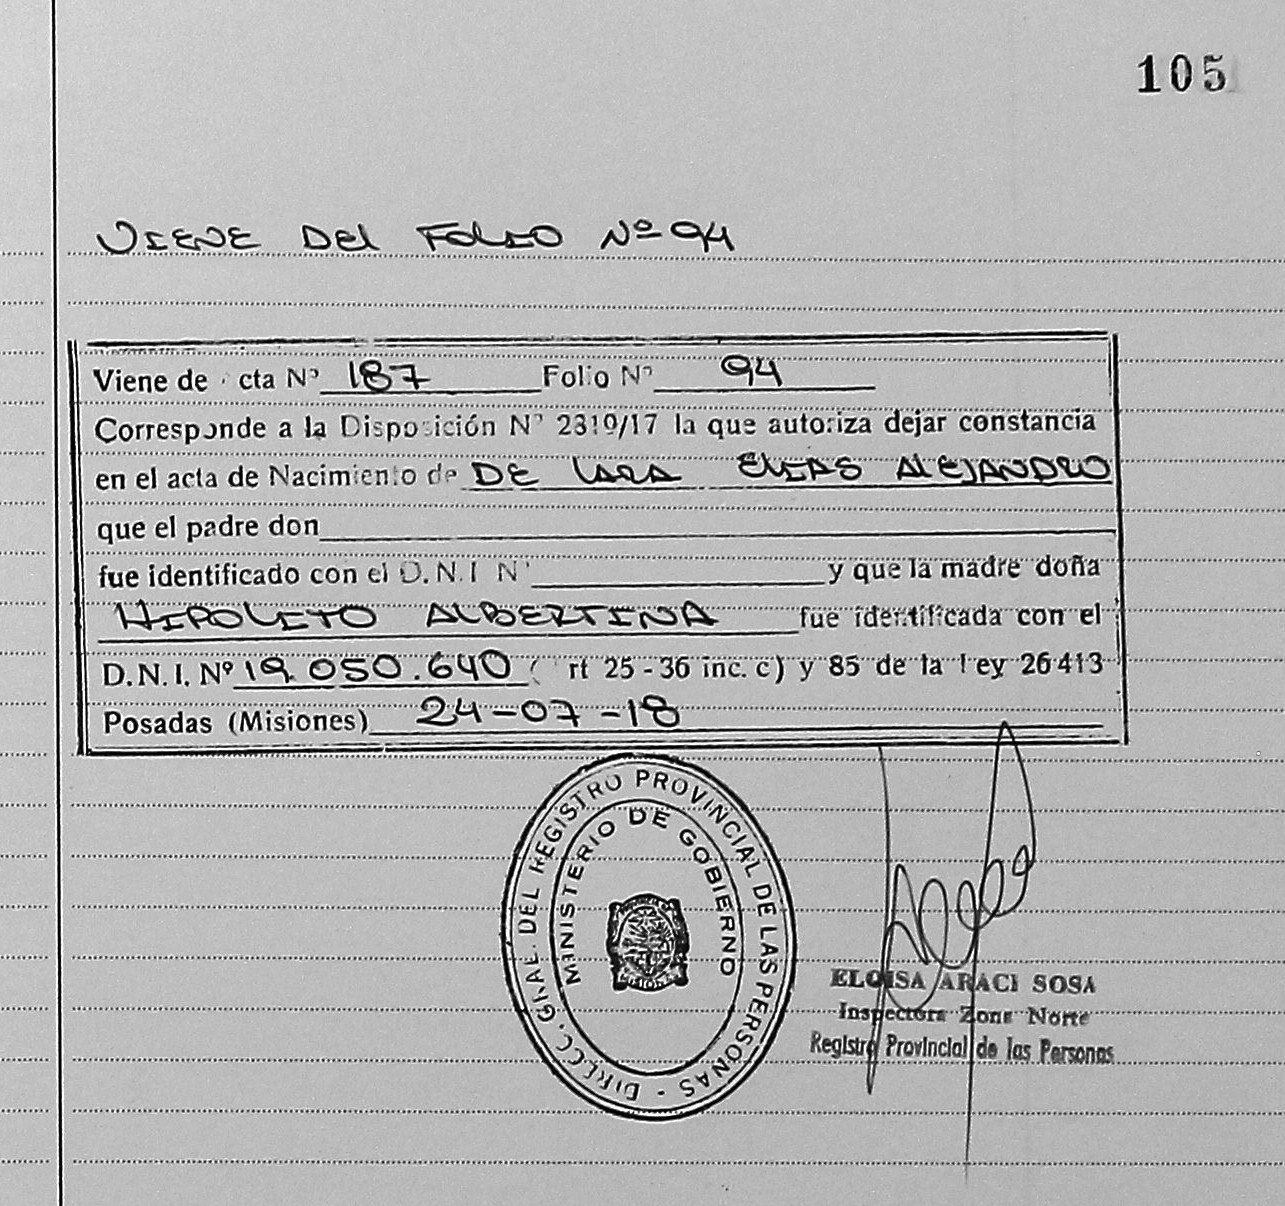 105
VIENE DEL FOLIO Nº 94
Viene de cta Nº 187 Folio Nº 94
Corresponde a la Disposición Nº 2310/17 la que autoriza dejar constancia
en el acta de Nacimiento de DE LARA ELIAS ALEJANDRO
que el padre don
fue identificado con el D.N.I Nº y que la madre doña
HIPOLITO ALBERTINA fue identificada con el
D.N.I. Nº 19.050.640 ( rt 25 - 36 inc. c) y 85 de la ley 26413
Posadas (Misiones) 24-07-18
DIRECC. GRAL. DEL REGISTRO PROVINCIAL DE LAS PERSONAS -
MINISTERIO DE GOBIERNO
ELOISA ARACI SOSA
Inspectora Zona Norte
Registro Provincial de las Personas